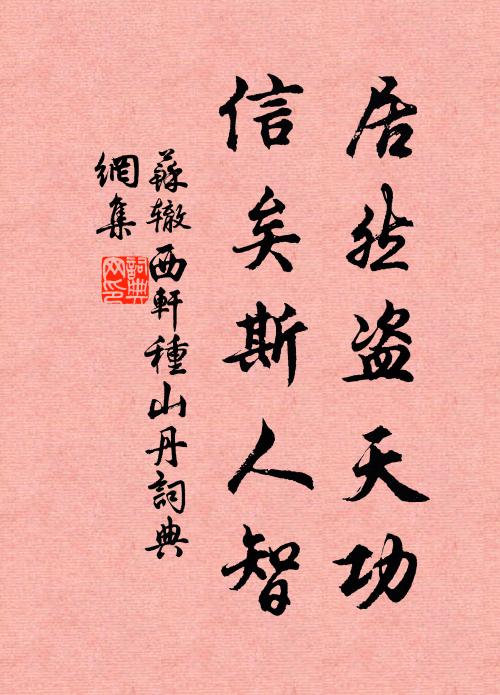 居然盗天功
信矣斯人智
蘇辙西軒種山丹詞典
網集
詞典網印